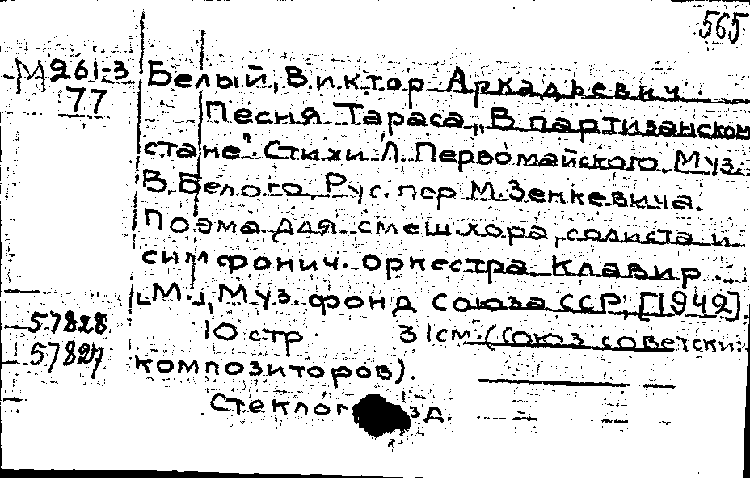 565
М261-3 Белый, Виктор Аркадьевич.
77 Песня Тараса „В партизанском
стане". Стихи Л. Первомайского. Муз.
В. Белого. Рус. пер М. Зенкевича.
Поэма для смеш. хора, солиста и
симфонич. оркестра. Клавир.
[М.], Муз. фонд Союза ССР, [1942].
57828 10 стр 31см. (Союз советски
57827 композиторов).